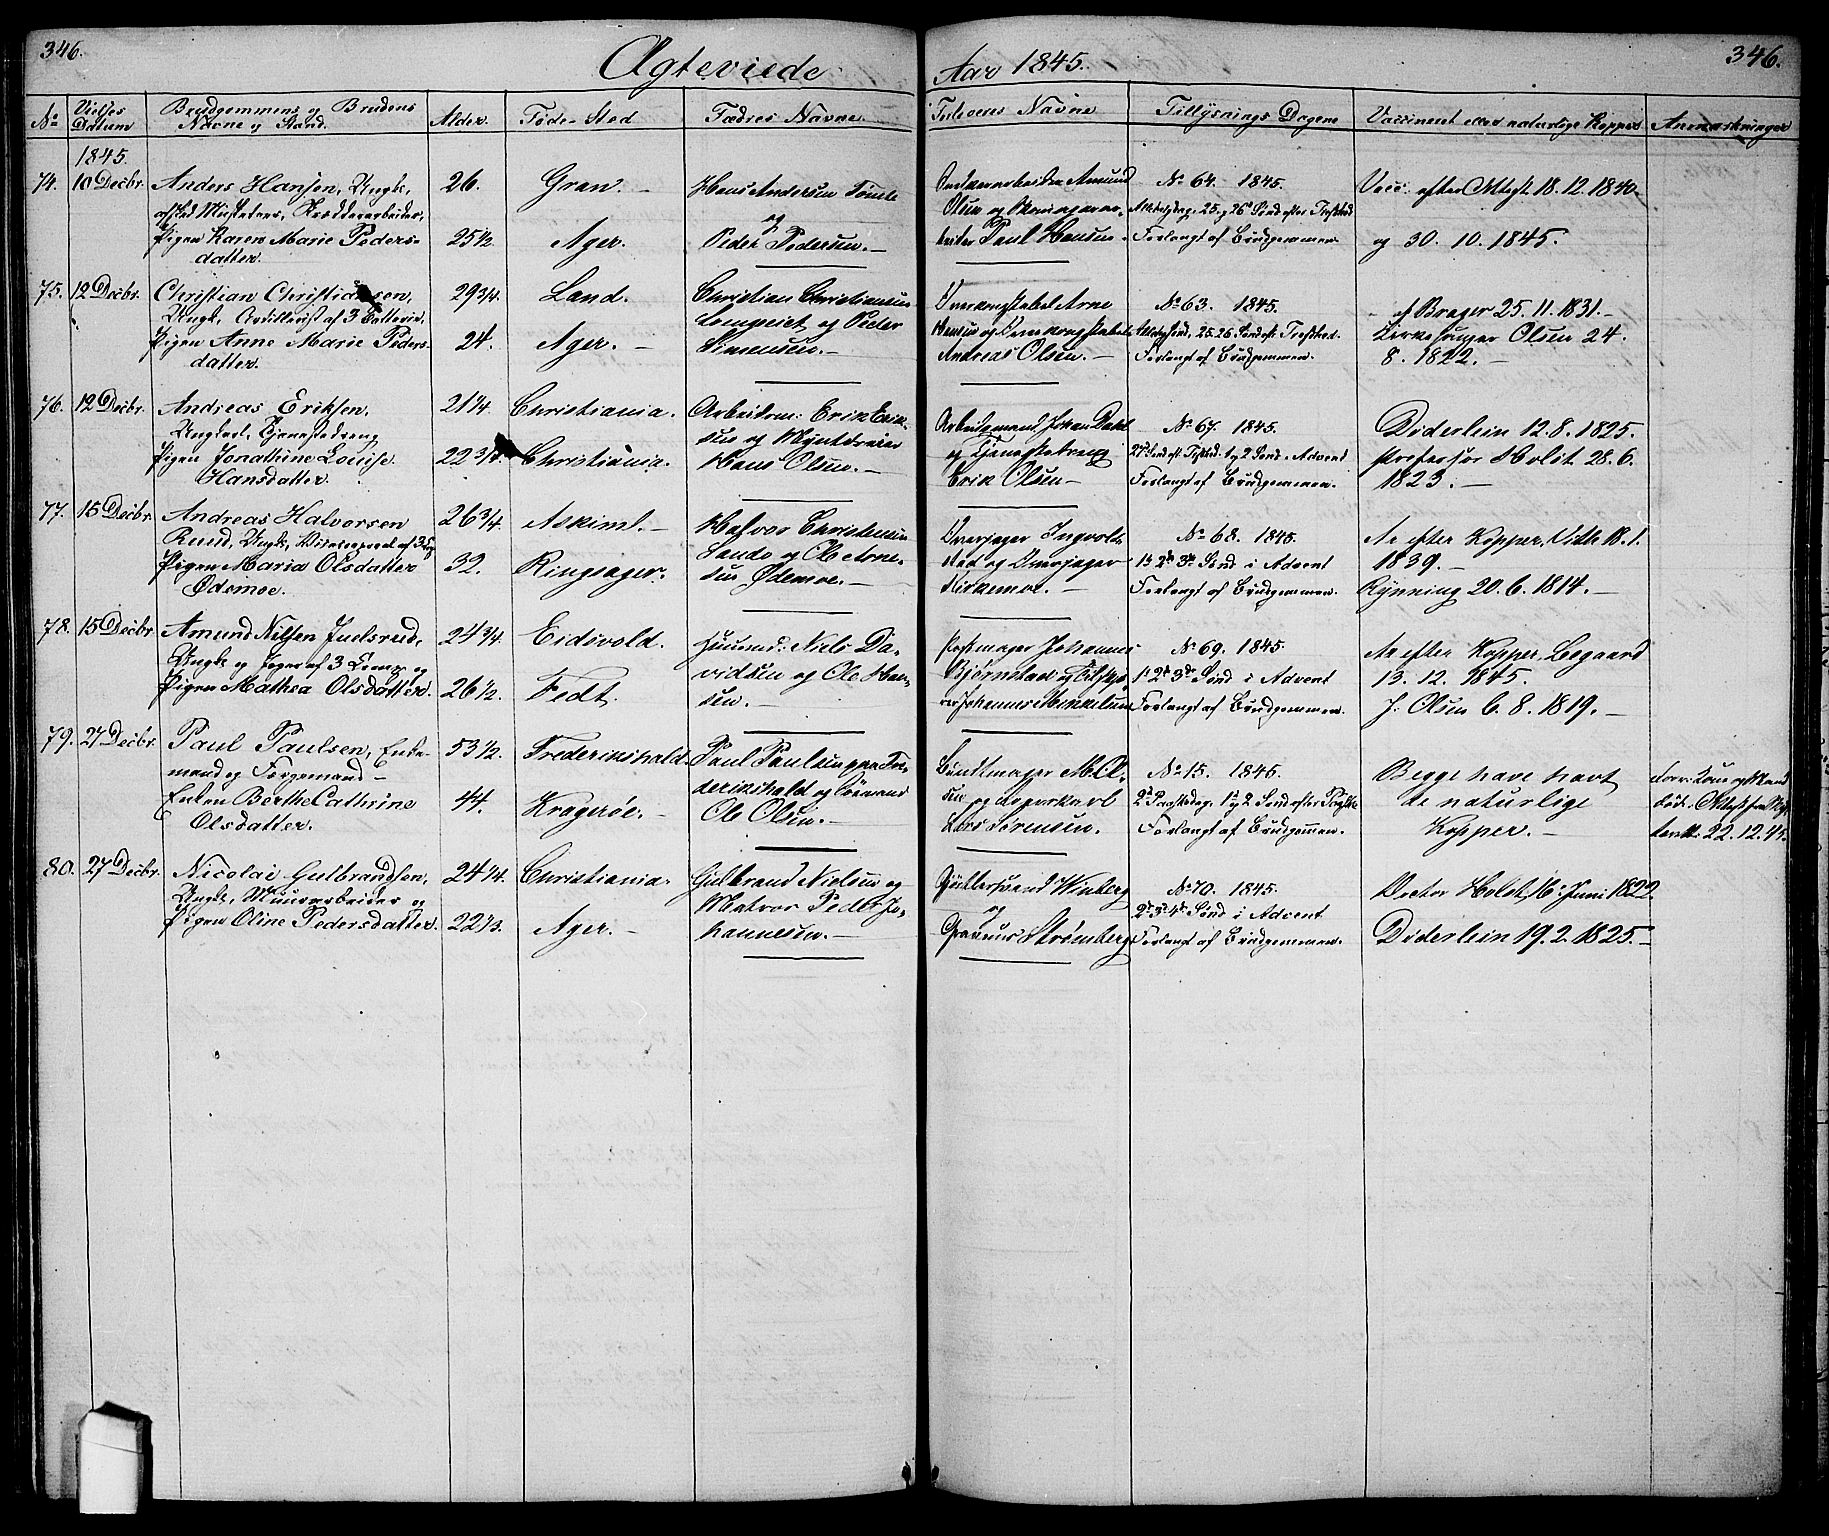 346.
Ægteviede
Aar 1845.
346.
No
Vielses Datum
Brudgommens og Brudens Navne og Stand.
Alder.
Føde-Sted
Fædres Navne
Forloveres Navne
Tillysnings Dagene
Vaccineret eller naturlige Kopper
Anmærkninger
1845.
74. 10 Decbr.
Anders Hansen, Ungk.,
Pigen Karen Marie Peders-
datter.
26.
25½
Gran. –
Ager. –
Hans Andersen Tømte
og
Peder Pedersen. –
Amund
Olsen og
Paul Hansen.
No 64. 1845.
25. og 26 Sønd. efter Trefold.
Forlangt af Brudgommen.
Vacc. efter Attest 18.12.1840
og 30.10.1845.
75. 12 Decbr.
Christian Christiansen,
Ungk., Artillerist af 3 Batterie,
Pigen Anne Marie Peders-
datter.
29¾.
24.
Land.
Ager. –
Christian Christiansen
og Peder
Simensen. –
Overkonstabel Arne
Hansen og
Andreas Olsen. –
No 63. 1845.
25. 26 Sønd. eft. Trefold.
Forlangt af Brudgommen.
25.11.1831. –
Kirkesanger Olsen 24.
8. 1822. –
76. 12 Decbr.
Andreas Eriksen,
Ungkarl, Tjenestedreng
Pigen Jonathine Louise
Hansdatter.
21¼
22¾
Christiania.
Christiania.
Arbeidsm: Erik Erik-
sen og
Hans Olsen. –
Arbeidsmand Johan Dahl
og Tjenestedreng
Erik Olsen –
No 67. 1845.
1 og 2 Sønd. i Advent
Forlangt af Brudgommen.
Døderlein 12.8.1825.
Professor Holst 28.6.
1823. –
77. 15 Decbr.
Andreas Halvorsen
Ruud, Ungk.,
Pigen Maria Olsdatter
Ødemoe.
26¾
32.
Askiml. –
Ringsager. –
Halvor Christensen
og Ole Arne-
sen Ødemoe. –
Overjæger Ingvold-
stad og Overjæger
Kirkemoe. –
No 68. 1845.
1. 2de 3de Sønd i Advent
Forlangt af Brudgommen.
Ar efter Kopper, 18.1.
1839. –
Rynning 20.6.1814. –
78. 15 Decbr.
Amund Nilsen Juelsrud,
Ungk. og Jæger af 3 Comp. og
Pigen Mathea Olsdatter
24¾.
26½.
Eidsvold.
Fedt.
Huusmd: Niels Da-
vidsen og Ole Han-
sen. –
Johannes
Bjørnstad og
Johannes Mikkelsen
No 69. 1845.
1. 2de 3de Sønd i Advent
Forlangt af Brudgommen.
Ar efter Kopper,
13.12.1845.
J. Olsen 6.8.1819. –
79. 27 Decbr.
Paul Paulsen, Enke-
mand og Færgemand –
Enken Berthe Cathrine
Olsdatter.
53½.
44.
Frederikshald
Kragerøe. –
Paul Paulsen paa Fre-
derikshald og Sømand
Ole Olsen. –
Buntmager M. Ol-
sen og
Lars Sørensen.
No 15. 1845.
2 Paaskedag, 1 og 2 Sønd efter Paaske
Forlangt af Brudgommen.
Begge have havt
de naturlige
Kopper. –
22.12.45.
80. 27 Decbr.
Nicolai Gulbrandsen,
Ungk., Muurarbeider og
Pigen Oline Pedersdatter.
24¼.
22⅓.
Christiania.
Ager. –
Gulbrand Nielsen og
Matros Peder Jo-
hannesen. –
Winberg
og
Strømberg
No 70. 1845.
2de 3de 4de Sønd i Advent
Forlangt af Brudgommen.
Doctor Holst, 16 Juni 1822.
Døderlein 19.2.1825. –